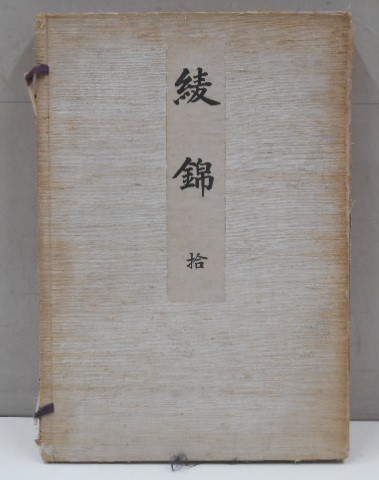 綾錦
拾